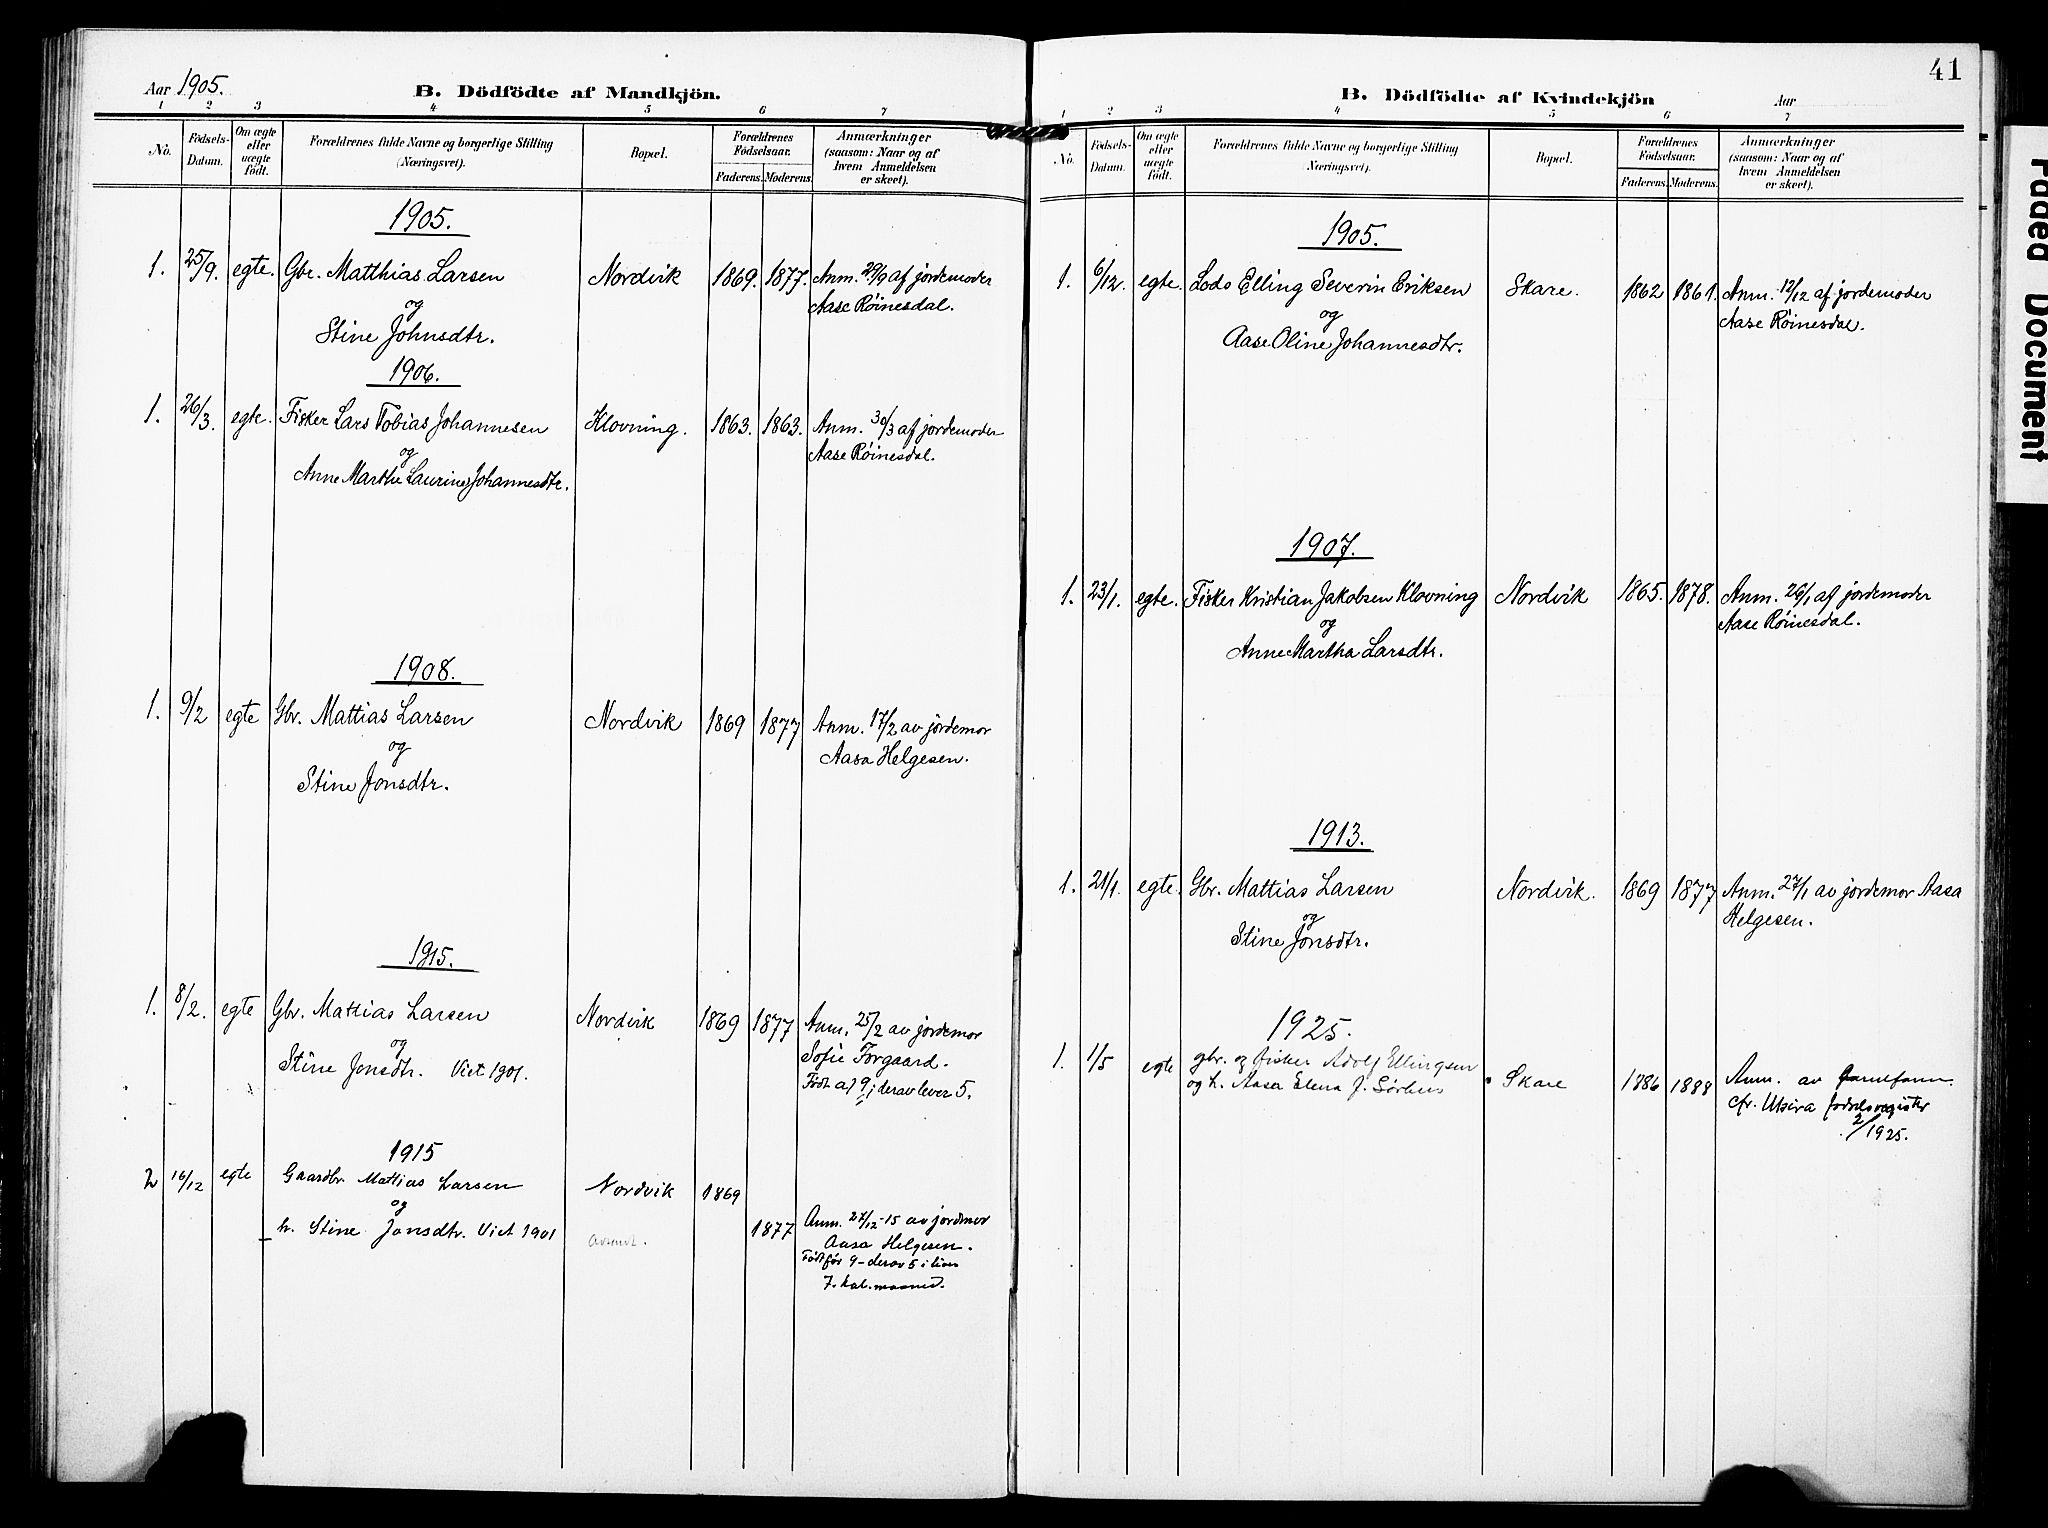 Aar 1905.
B. Dödfödte af Mandkjön.
1 2 3 4 5 6 7
No. Födsels-Datum. Om ægte eller uægte födt. Forældrenes fulde Navne og borgerlige Stilling (Næringsvei). Bopæl. Forældrenes Födselsaar. Faderens. Moderens. Anmærkninger (saasom: Naar og af hvem Anmeldelsen er skeet).
1905.
1. 25/9. egte. Gbr. Matthias Larsen Nordvik 1869. 1877. Anm. 29/9 af jordemoder
og Aase Røinesdal.
Stine Johnsdtr.
1906.
1. 26/3. egte. Fisker Lars Tobias Johannesen Klovning. 1863. 1863. Anm. 30/3 af jordemoder
og Aase Røinesdal.
Anne Marthe Laurine Johannesdtr.
1908.
1. 9/2 egte Gbr. Mattias Larsen Nordvik 1869 1877 Anm. 17/2 av jordemor
og Aasa Helgesen.
Stine Jonsdtr.
1915.
1. 8/2. egte Gbr. Mattias Larsen Nordvik 1869 1877 Anm. 25/2 av jordemor
og Sofie Torgaard.
Stine Jonsdtr. Viet 1901. Født af 9; derav lever 5.
1915
2 16/12 egte Gaardbr. Mattias Larsen Nordvik 1869
og
h. Stine Jonsdtr. Viet 1901 1877 Anm. 27/12-15 av jordmor
Aasa Helgesen.
Født før 9 - derav 5 i live
7. kal. maaned.
41
B. Dödfödte af Kvindekjön
Aar
1 2 3 4 5 6 7
No. Födsels-Datum. Om ægte eller uægte födt. Forældrenes fulde Navne og borgerlige Stilling Næringsvei). Bopæl. Forældrenes Födselsaar. Faderens. Moderens. Anmærkninger (saasom: Naar og af hvem Anmeldelsen er skeet).
1905.
1. 6/12. egte. Lods Elling Severin Eriksen Skare. 1862 1861. Anm. 12/12 af jordemoder
og Aase Røinesdal.
Aase Oline Johannesdtr.
1907.
1. 23/1. egte. Fisker Kristian Jakobsen Klovning Nordvik 1865. 1878. Anm. 26/1 af jordemoder
og Aase Røinesdal.
Anne Martha Larsdtr.
1913.
1. 21/1. egte. Gbr. Mattias Larsen Nordvik. 1869 1877 Anm. 27/1 av jordemor Aasa
og Helgesen.
Stine Jonsdtr.
1925.
1. 1/5 egte gbr. og fisker Adolf Ellingsen Skare 1886 1888 Anm. av
og h. Aasa Elena J. cfr. Utsira fødselsregister
2/1925.
Paged Document